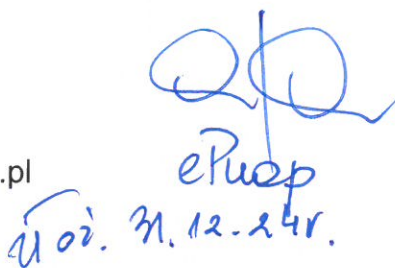 .pl
ePuap
31.12.24r.